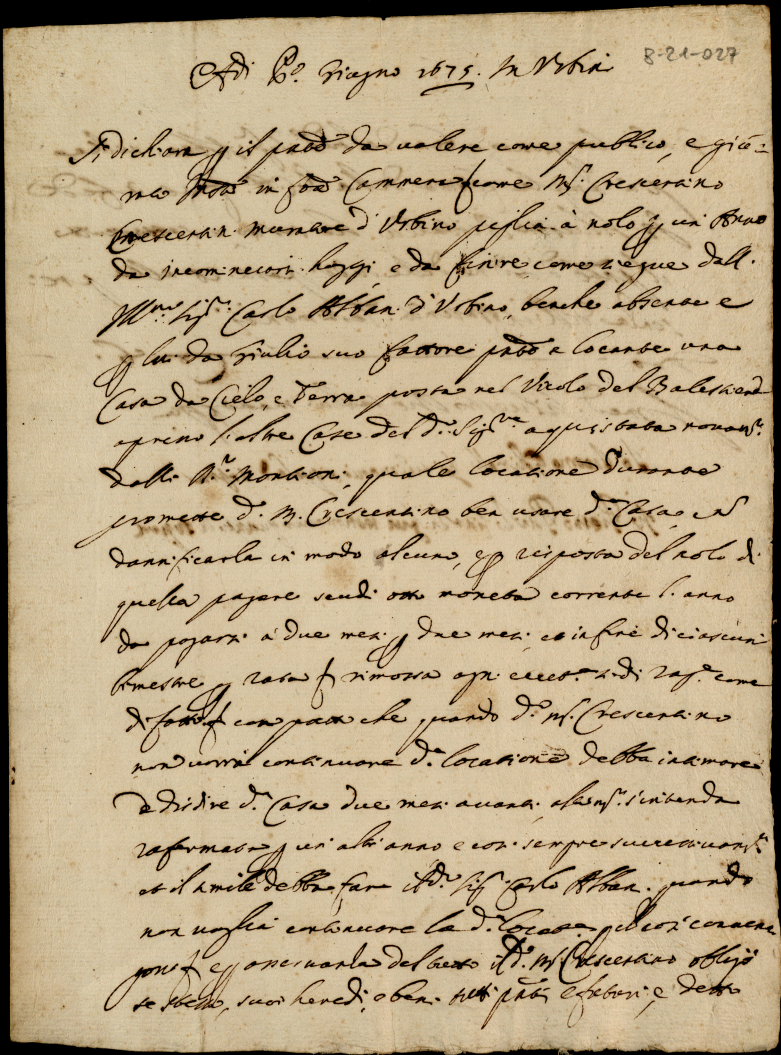 8-21-027
Adi P.o Giugno 1675. In Urbino
Si dichiara p il pnte da valere come publico, e giu=
in Cammera come M.s Crescentino
Crescentin. muratore d'Urbino piglia à nolo p un Anno
da incominciarsi hoggi e da finire come siegue dall.
Ill.mo Sig.r Carlo Alban. d'Urbino, benche absente e
p lui da Giulio suo fattore pnte e locante una
Casa da Cielo, e Terra posta nel Vicolo del
apresso l'altre Case del d.o Sig.re aquistata
dalli quale locatione durante
promette d.o M. Crescentino ben usare d.a Casa, e nõ
dannificarla in modo alcuno, e p risposta del nolo di
quella pagare scudi otto moneta corrente l'anno
da pagarsi à due mesi p due mesi et in fine di ciascun
bimestre p rata rimossa ogni come
di fatto con patto che quando d.o M.s Crescentino
non vorrà continuare d.a locatione debba intimare
e disdire d.a Casa due mesi avanti s'intenda
rafermata p un altr'anno e così sempre
et il simile debba fare il d.o Sig. Carlo Alban. quando
non voglia continuare la d.a e così
e p osservanza del tutto il d.o M.s Crescentino obligò
se stesso, suoi heredi, e beni tutti pnti e futuri, e